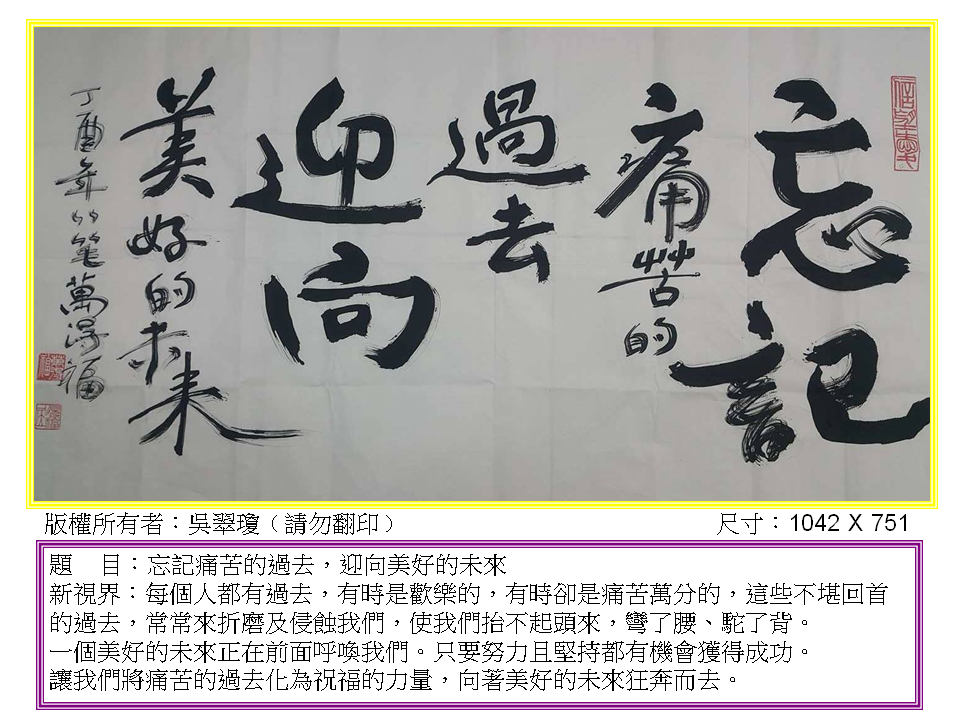 忘記
痛苦的
過去
迎向
美好的未來
丁酉年 萬得福
版權所有者：吳翠瓊（請勿翻印）
尺寸：1042 X 751
題　目：忘記痛苦的過去，迎向美好的未來
新視界：每個人都有過去，有時是歡樂的，有時卻是痛苦萬分的，這些不堪回首
的過去，常常來折磨及侵蝕我們，使我們抬不起頭來，彎了腰、駝了背。
一個美好的未來正在前面呼喚我們。只要努力且堅持都有機會獲得成功。
讓我們將痛苦的過去化為祝福的力量，向著美好的未來狂奔而去。